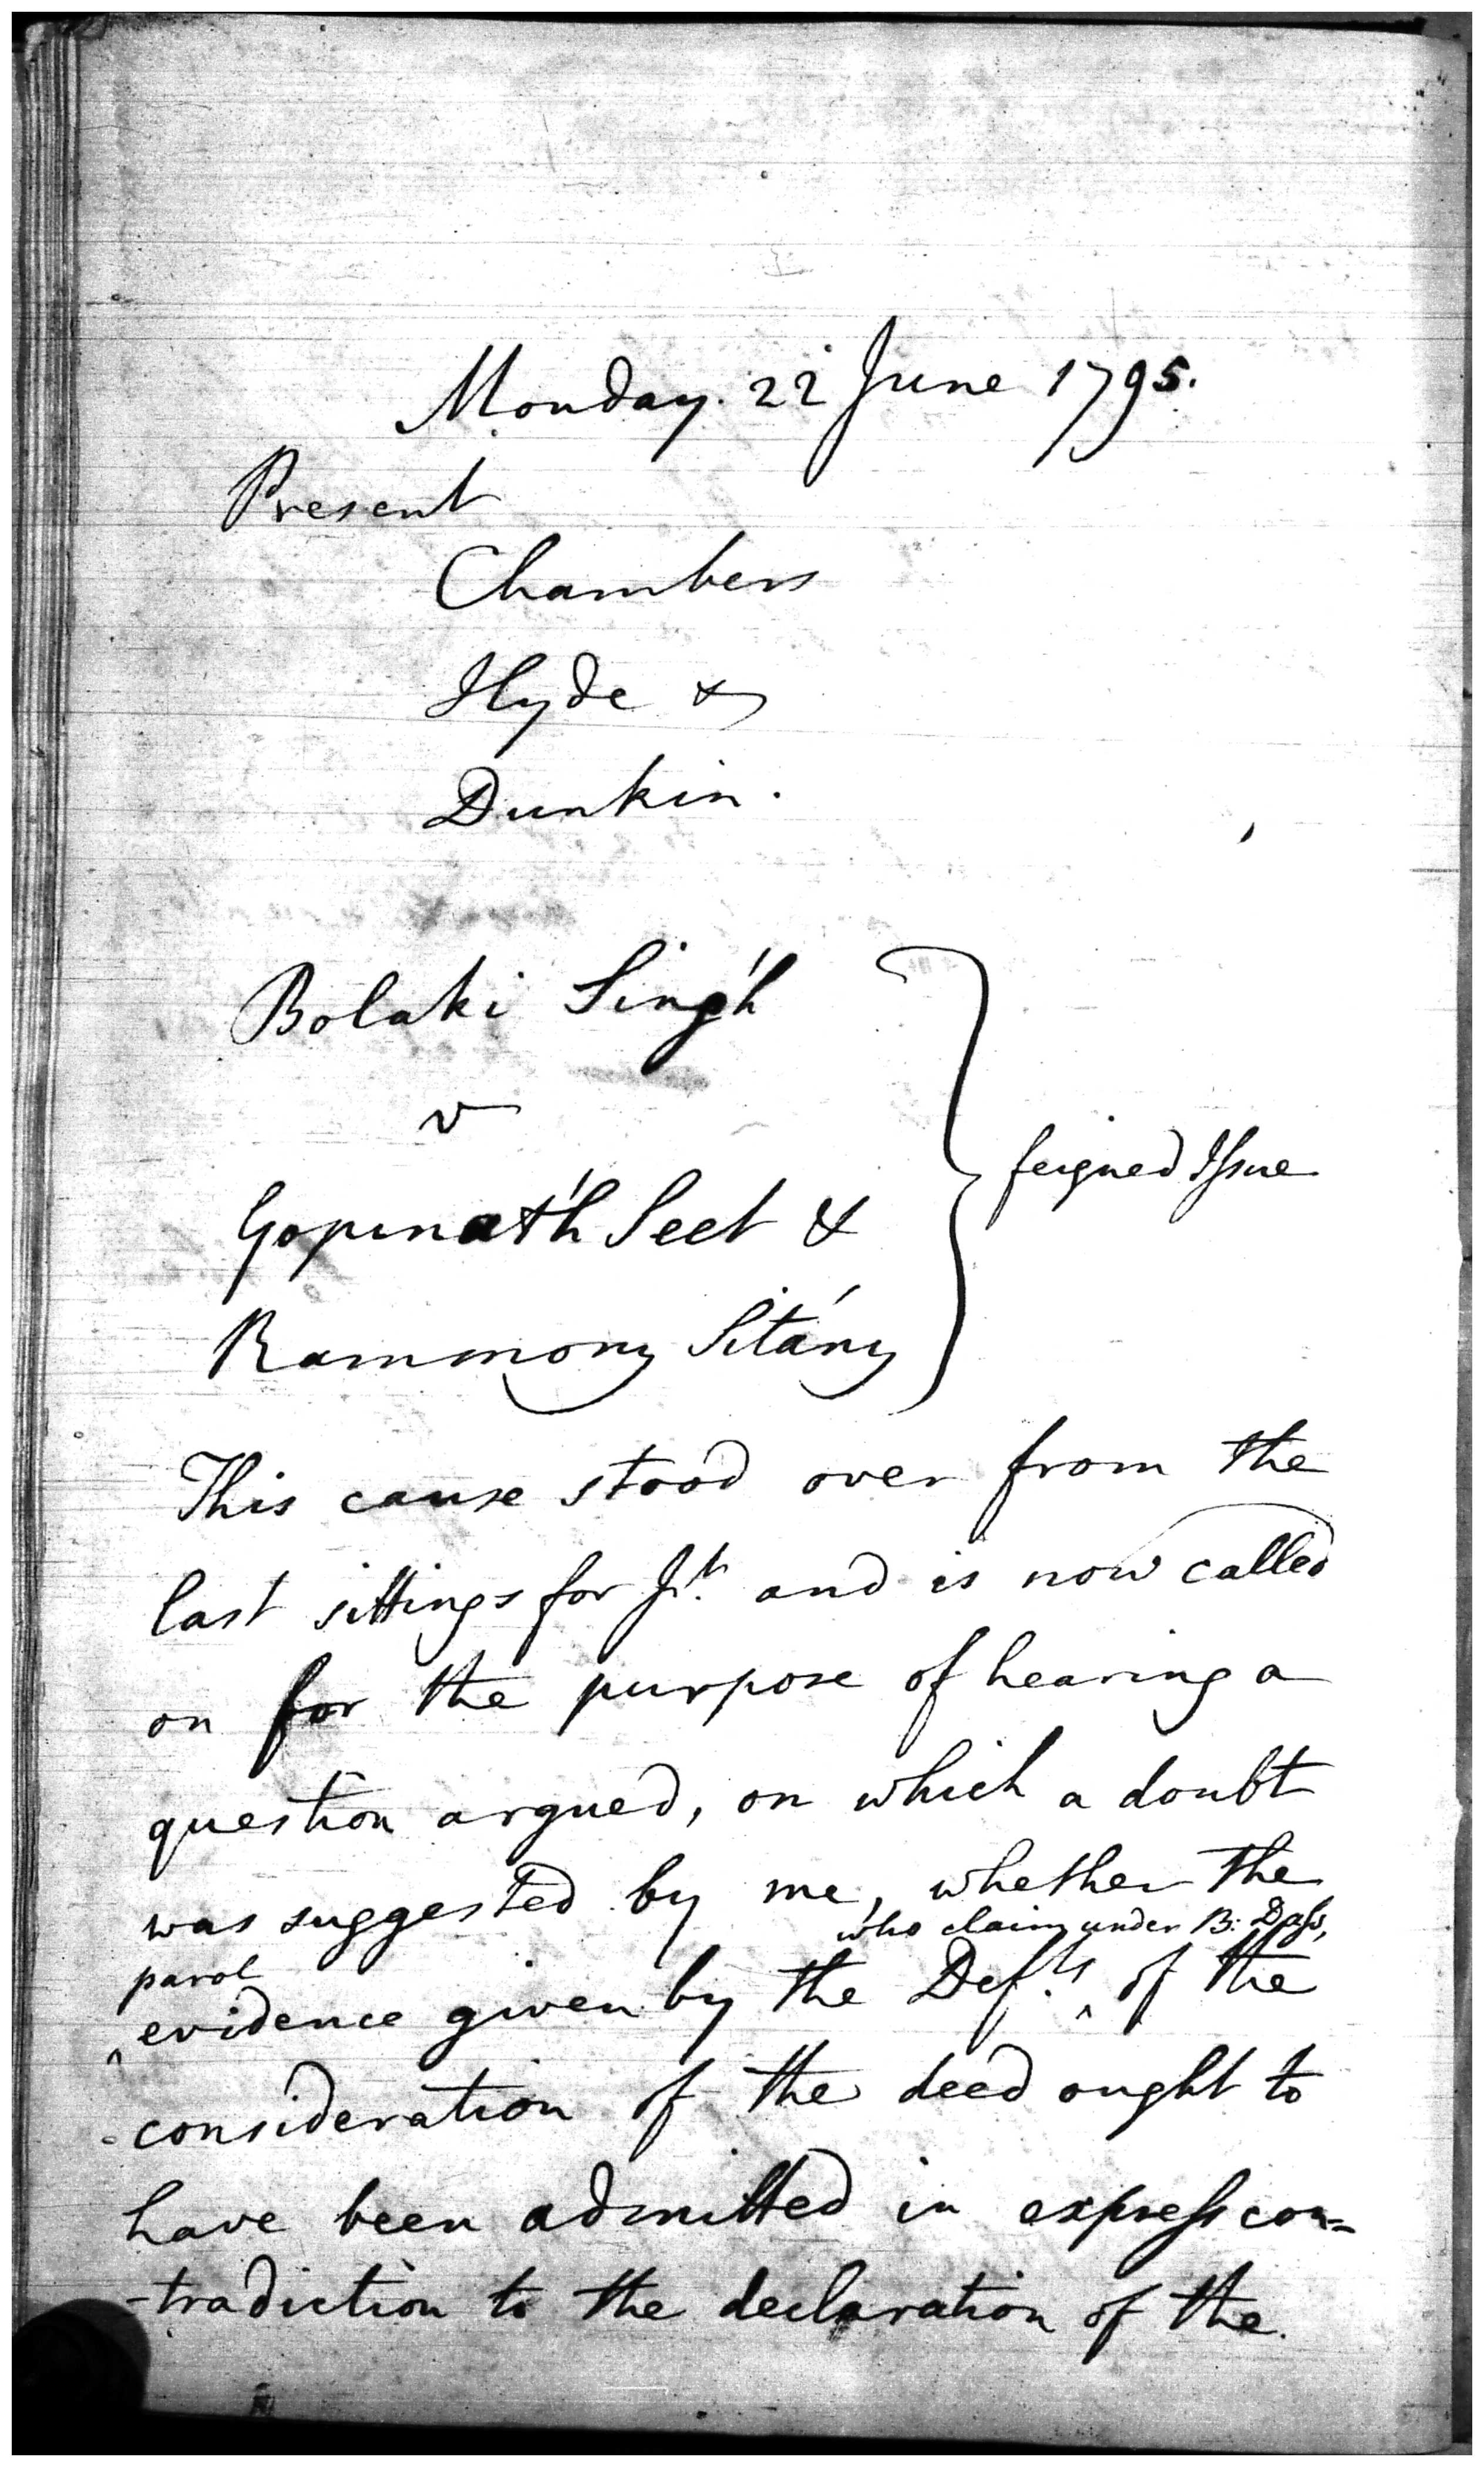 Monday. 22 June 1795.
Present
Chambers
Hyde &
Dunkin.
Bolaki Sing'h
v
Gopinat'h Seet &
Rammony Sitány
feigned Issue
This cause stood over from the
last sittings for Jt. and is now called
on for the purpose of hearing a
question argued, on which a doubt
was suggested by me, whether the
who claim under B: Dass,
parol
evidence given by the Defts. of the
consideration of the deed ought to
have been admitted in express con=
-tradiction to the declaration of the.